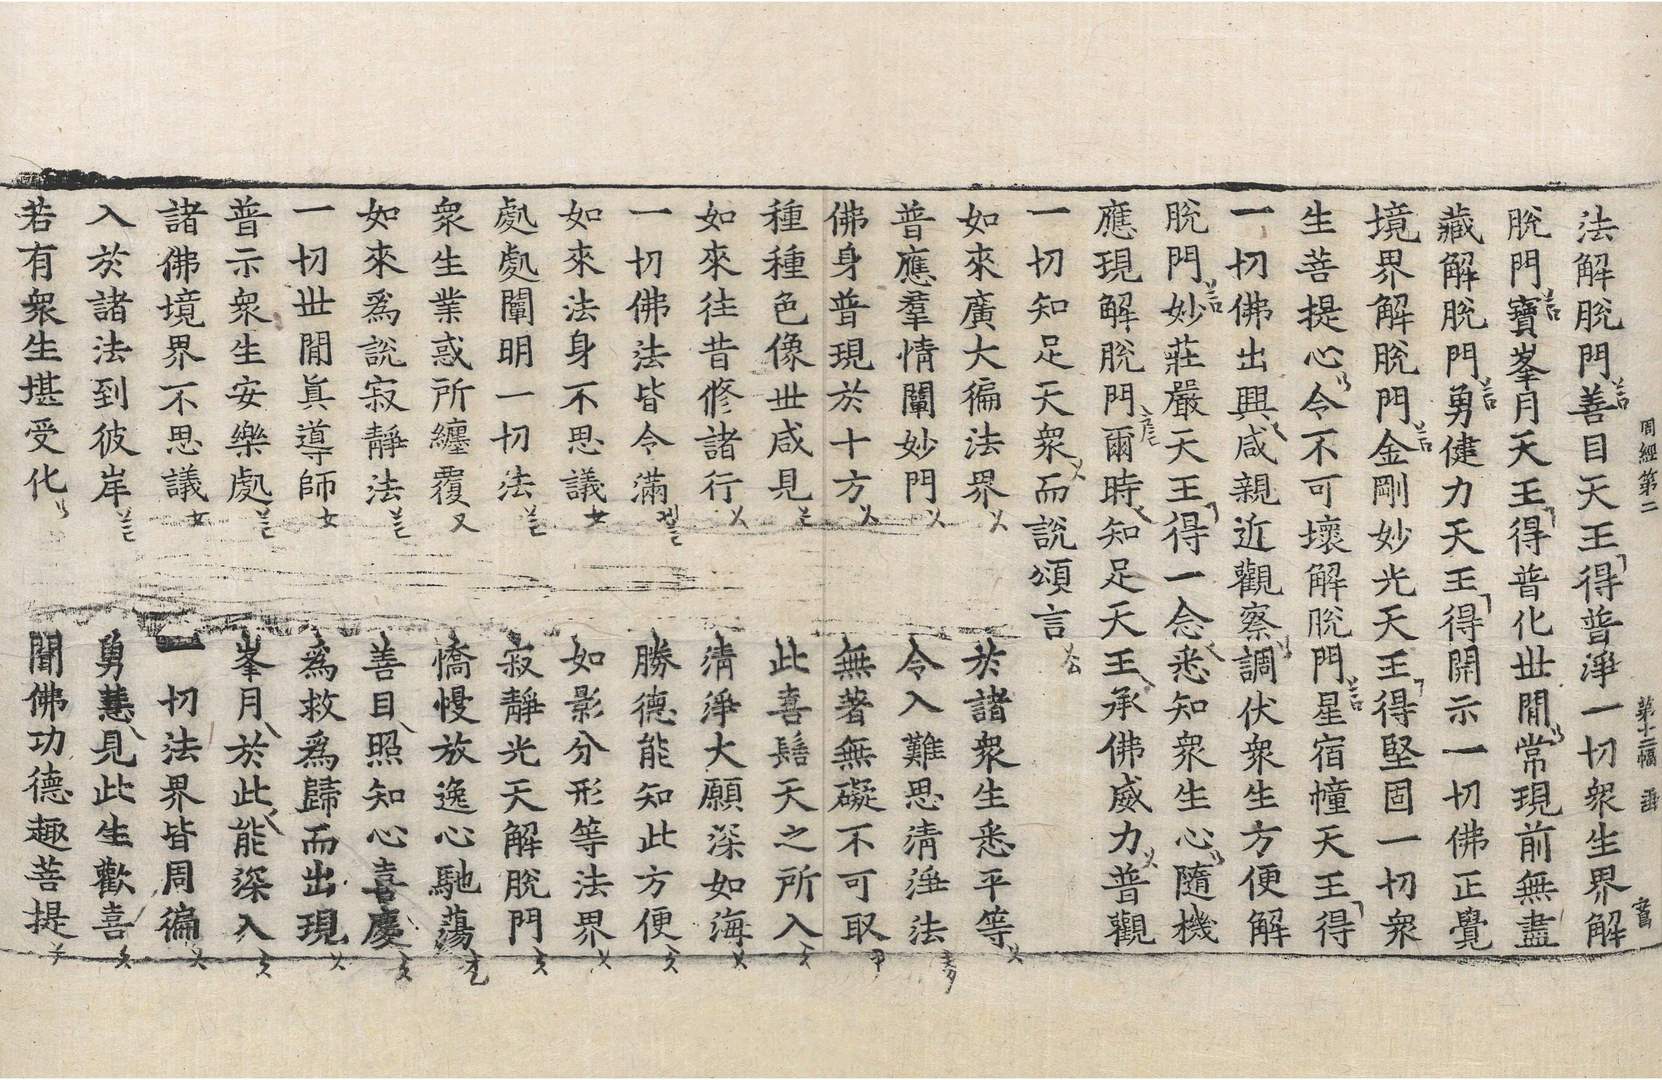 周經第二 第十二幅
法解脫門善目天王得普淨一切衆生界解
脫門寶峯月天王得普化世間常現前無盡
藏解脫門勇健力天王得開示一切佛正覺
境界解脫門金剛妙光天王得堅固一切衆
生菩提心令不可壞解脫門星宿幢天王得
一切佛出興咸親近觀察調伏衆生方便解
脫門妙莊嚴天王得一念悉知衆生心隨機
應現解脫門爾時知足天王承佛威力普觀
一切知足天衆而說頌言
如來廣大徧法界 於諸衆生悉平等
普應羣情闡妙門 令入難思淸淨法
佛身普現於十方 無著無礙不可取
種種色像世咸見 此喜髻天之所入
如來往昔修諸行 淸淨大願深如海
一切佛法皆令滿 勝德能知此方便
如來法身不思議 如影分形等法界
處處闡明一切法 寂靜光天解脫門
衆生業惑所纏覆 憍慢放逸心馳蕩
如來爲說寂靜法 善目照知心喜慶
一切世間眞導師 爲救爲歸而出現
普示衆生安樂處 峯月於此能深入
諸佛境界不思議 一切法界皆周徧
入於諸法到彼岸 勇慧見此生歡喜
若有衆生堪受化 聞佛功德趣菩提